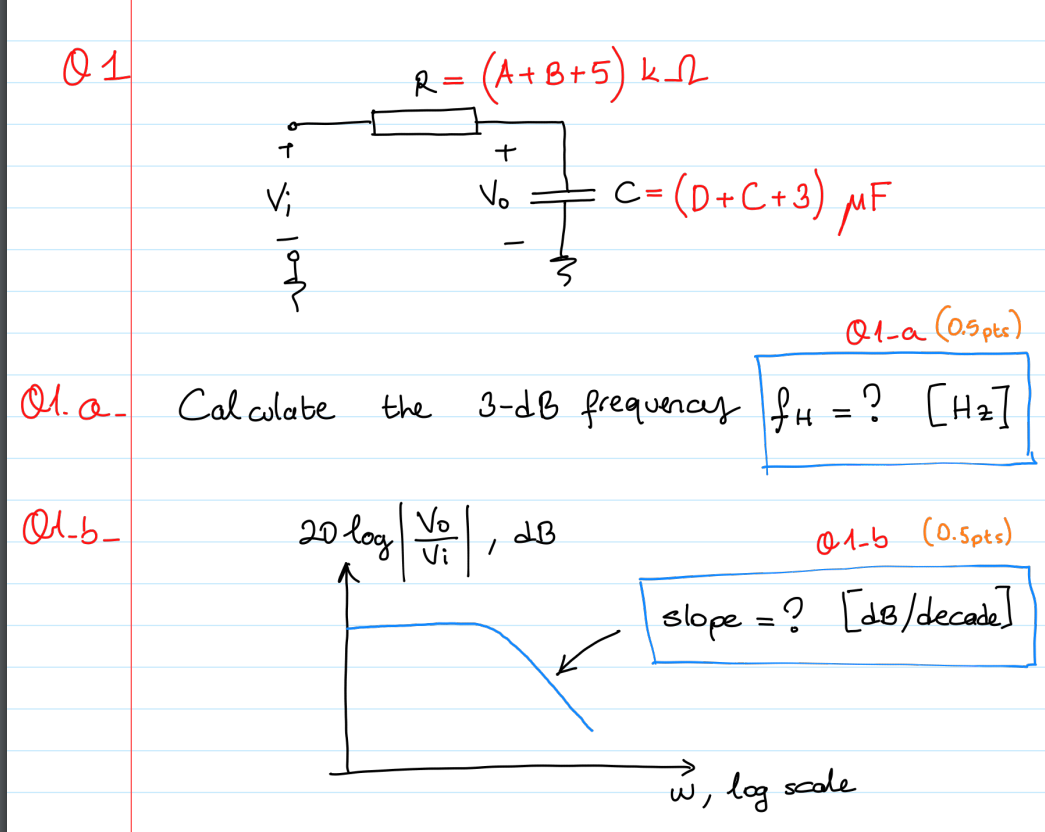 Q1
R = (A+B+5) kΩ
+
+
Vi
Vo
C = (D+C+3) μF
−
−
Q1-a (0.5pts)
Q1.a- Calculate the 3-dB frequency fH = ? [Hz]
Q1-b- 20 log |Vo/Vi| , dB
Q1-b (0.5pts)
slope = ? [dB/decade]
w, log scale